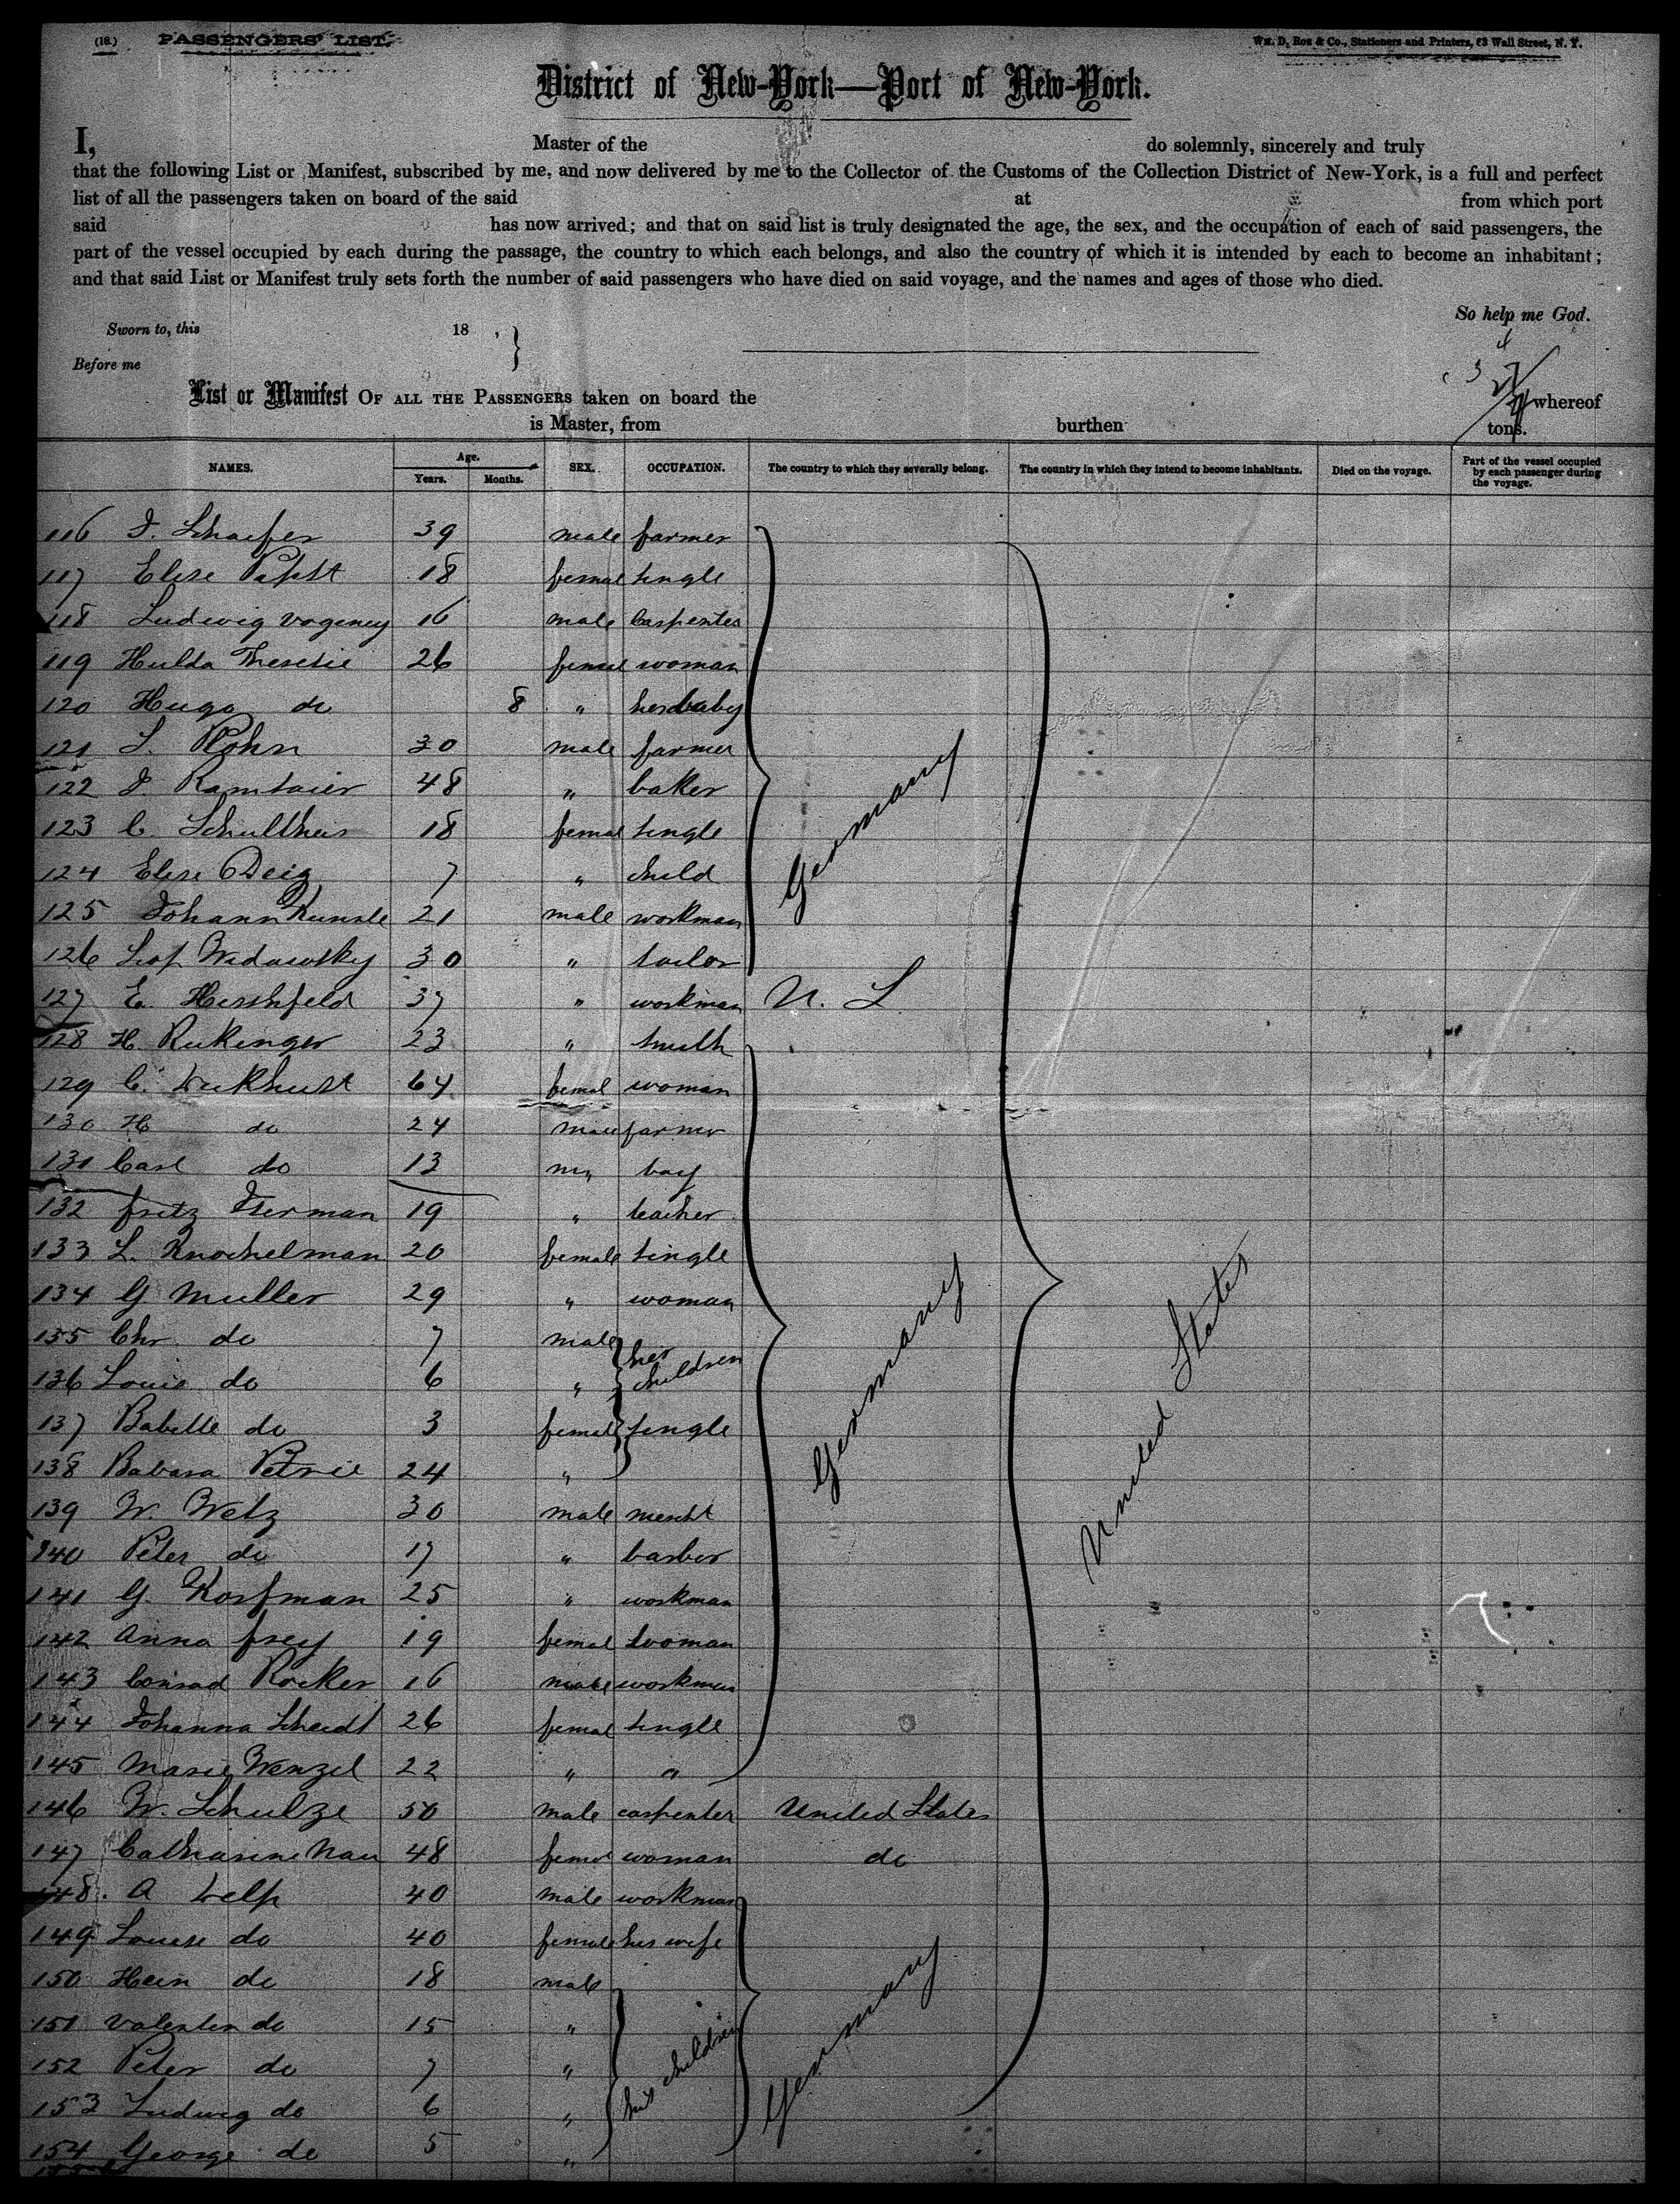 (18.) PASSENGERS' LIST. Wm. D. Roe & Co., Stationers and Printers, 63 Wall Street, N. Y.
District of New-York—Port of New-York.
I, Master of the do solemnly, sincerely and truly
that the following List or Manifest, subscribed by me, and now delivered by me to the Collector of the Customs of the Collection District of New-York, is a full and perfect
list of all the passengers taken on board of the said at from which port
said has now arrived; and that on said list is truly designated the age, the sex, and the occupation of each of said passengers, the
part of the vessel occupied by each during the passage, the country to which each belongs, and also the country of which it is intended by each to become an inhabitant;
and that said List or Manifest truly sets forth the number of said passengers who have died on said voyage, and the names and ages of those who died.
So help me God.
Sworn to, this 18 ,
Before me
List or Manifest OF ALL THE PASSENGERS taken on board the whereof
is Master, from burthen tons.
NAMES. Age. Years. Months. SEX. OCCUPATION. The country to which they severally belong. The country in which they intend to become inhabitants. Died on the voyage. Part of the vessel occupied by each passenger during the voyage.
116 J. Schaefer 39 male farmer
117 Elise Papst 18 femal single
118 Ludwig Vogeney 16 male Carpenter
119 Hulda Theresie 26 femal woman
120 Hugo do 8 " her baby
121 L. Rohn 30 male farmer
122 J. Ramsaier 48 " baker
123 C. Schultheis 18 femal single
124 Elise Deig 7 " child
125 Johann Kunzle 21 male workman
126 Leop 30 " tailor
Germany
127 E. Hershfeld 37 " workman U. S.
128 H. Rukinger 23 " smith
129 C. 64 femal woman
130 H do 24 male farmer
131 Carl do 13 m, boy
132 fritz Iserman 19 " teacher
133 L. Knochelman 20 female single
134 G Muller 29 " woman
135 Chr do 7 male her children
136 Louis do 6 "
137 Babette do 3 femal single
138 Babara Petrie 24 "
139 W. Wetz 30 male mercht
140 Peter do 17 " barber
141 G. Korfman 25 " workman
142 Anna frey 19 femal woman
143 Conrad Rocker 16 male workman
144 Johanna Scheidt 26 femal single
145 Marie Wenzel 22 " "
Germany
United States
146 W. Schulze 50 male carpenter United States
147 Catharine Nau 48 femal woman do
148. A Welp 40 male workman
149 Louise do 40 female his wife
150 Hein do 18 male
151 Valentin do 15 "
152 Peter do 7 " his children
153 Ludwig do 6 "
154 George do 5 "
Germany